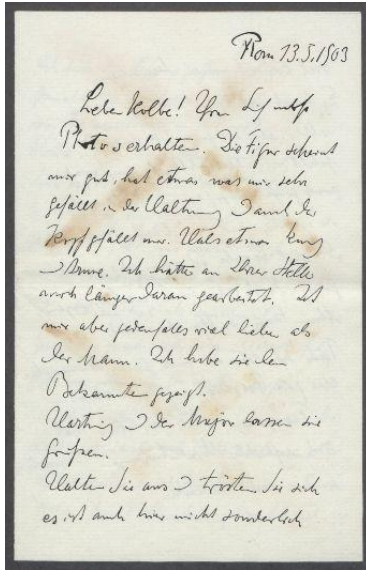 Rom 13.5.1903
Lieber Kolbe! Von
Photos erhalten. Die Figur scheint
mir gut, hat etwas was mir sehr
gefällt in der Haltung und auch der
Kopf gefällt mir. Hals etwas kurz
und Arme. Ich hätte an Ihrer Stelle
noch länger daran gearbeitet. Ist
mir aber jedenfalls viel lieber als
der Mann. Ich habe sie den
Bekannten gezeigt.
Hartwig und der Major lassen sie
grüßen.
Halten Sie aus und trösten Sie sich
es ist auch hier nicht sonderlich